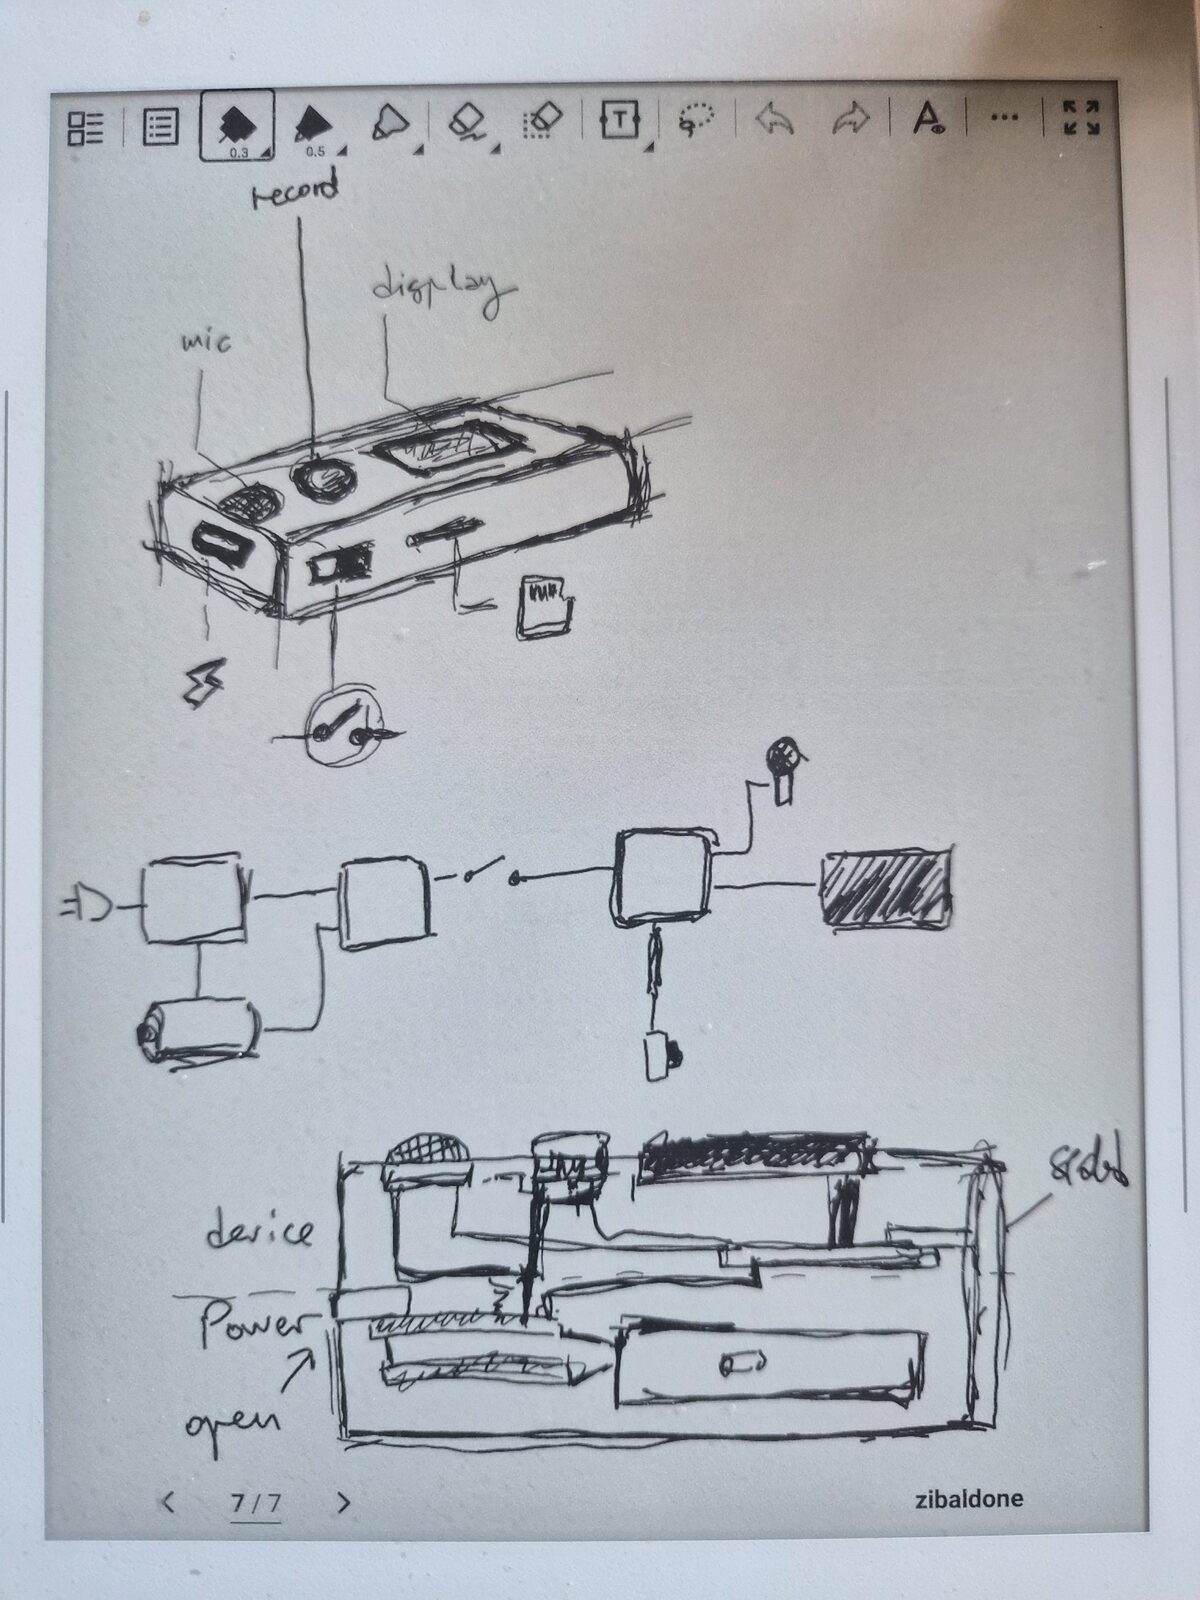 0.3
0.5
T
A
record
display
mic
device
Power
open
7/7
zibaldone